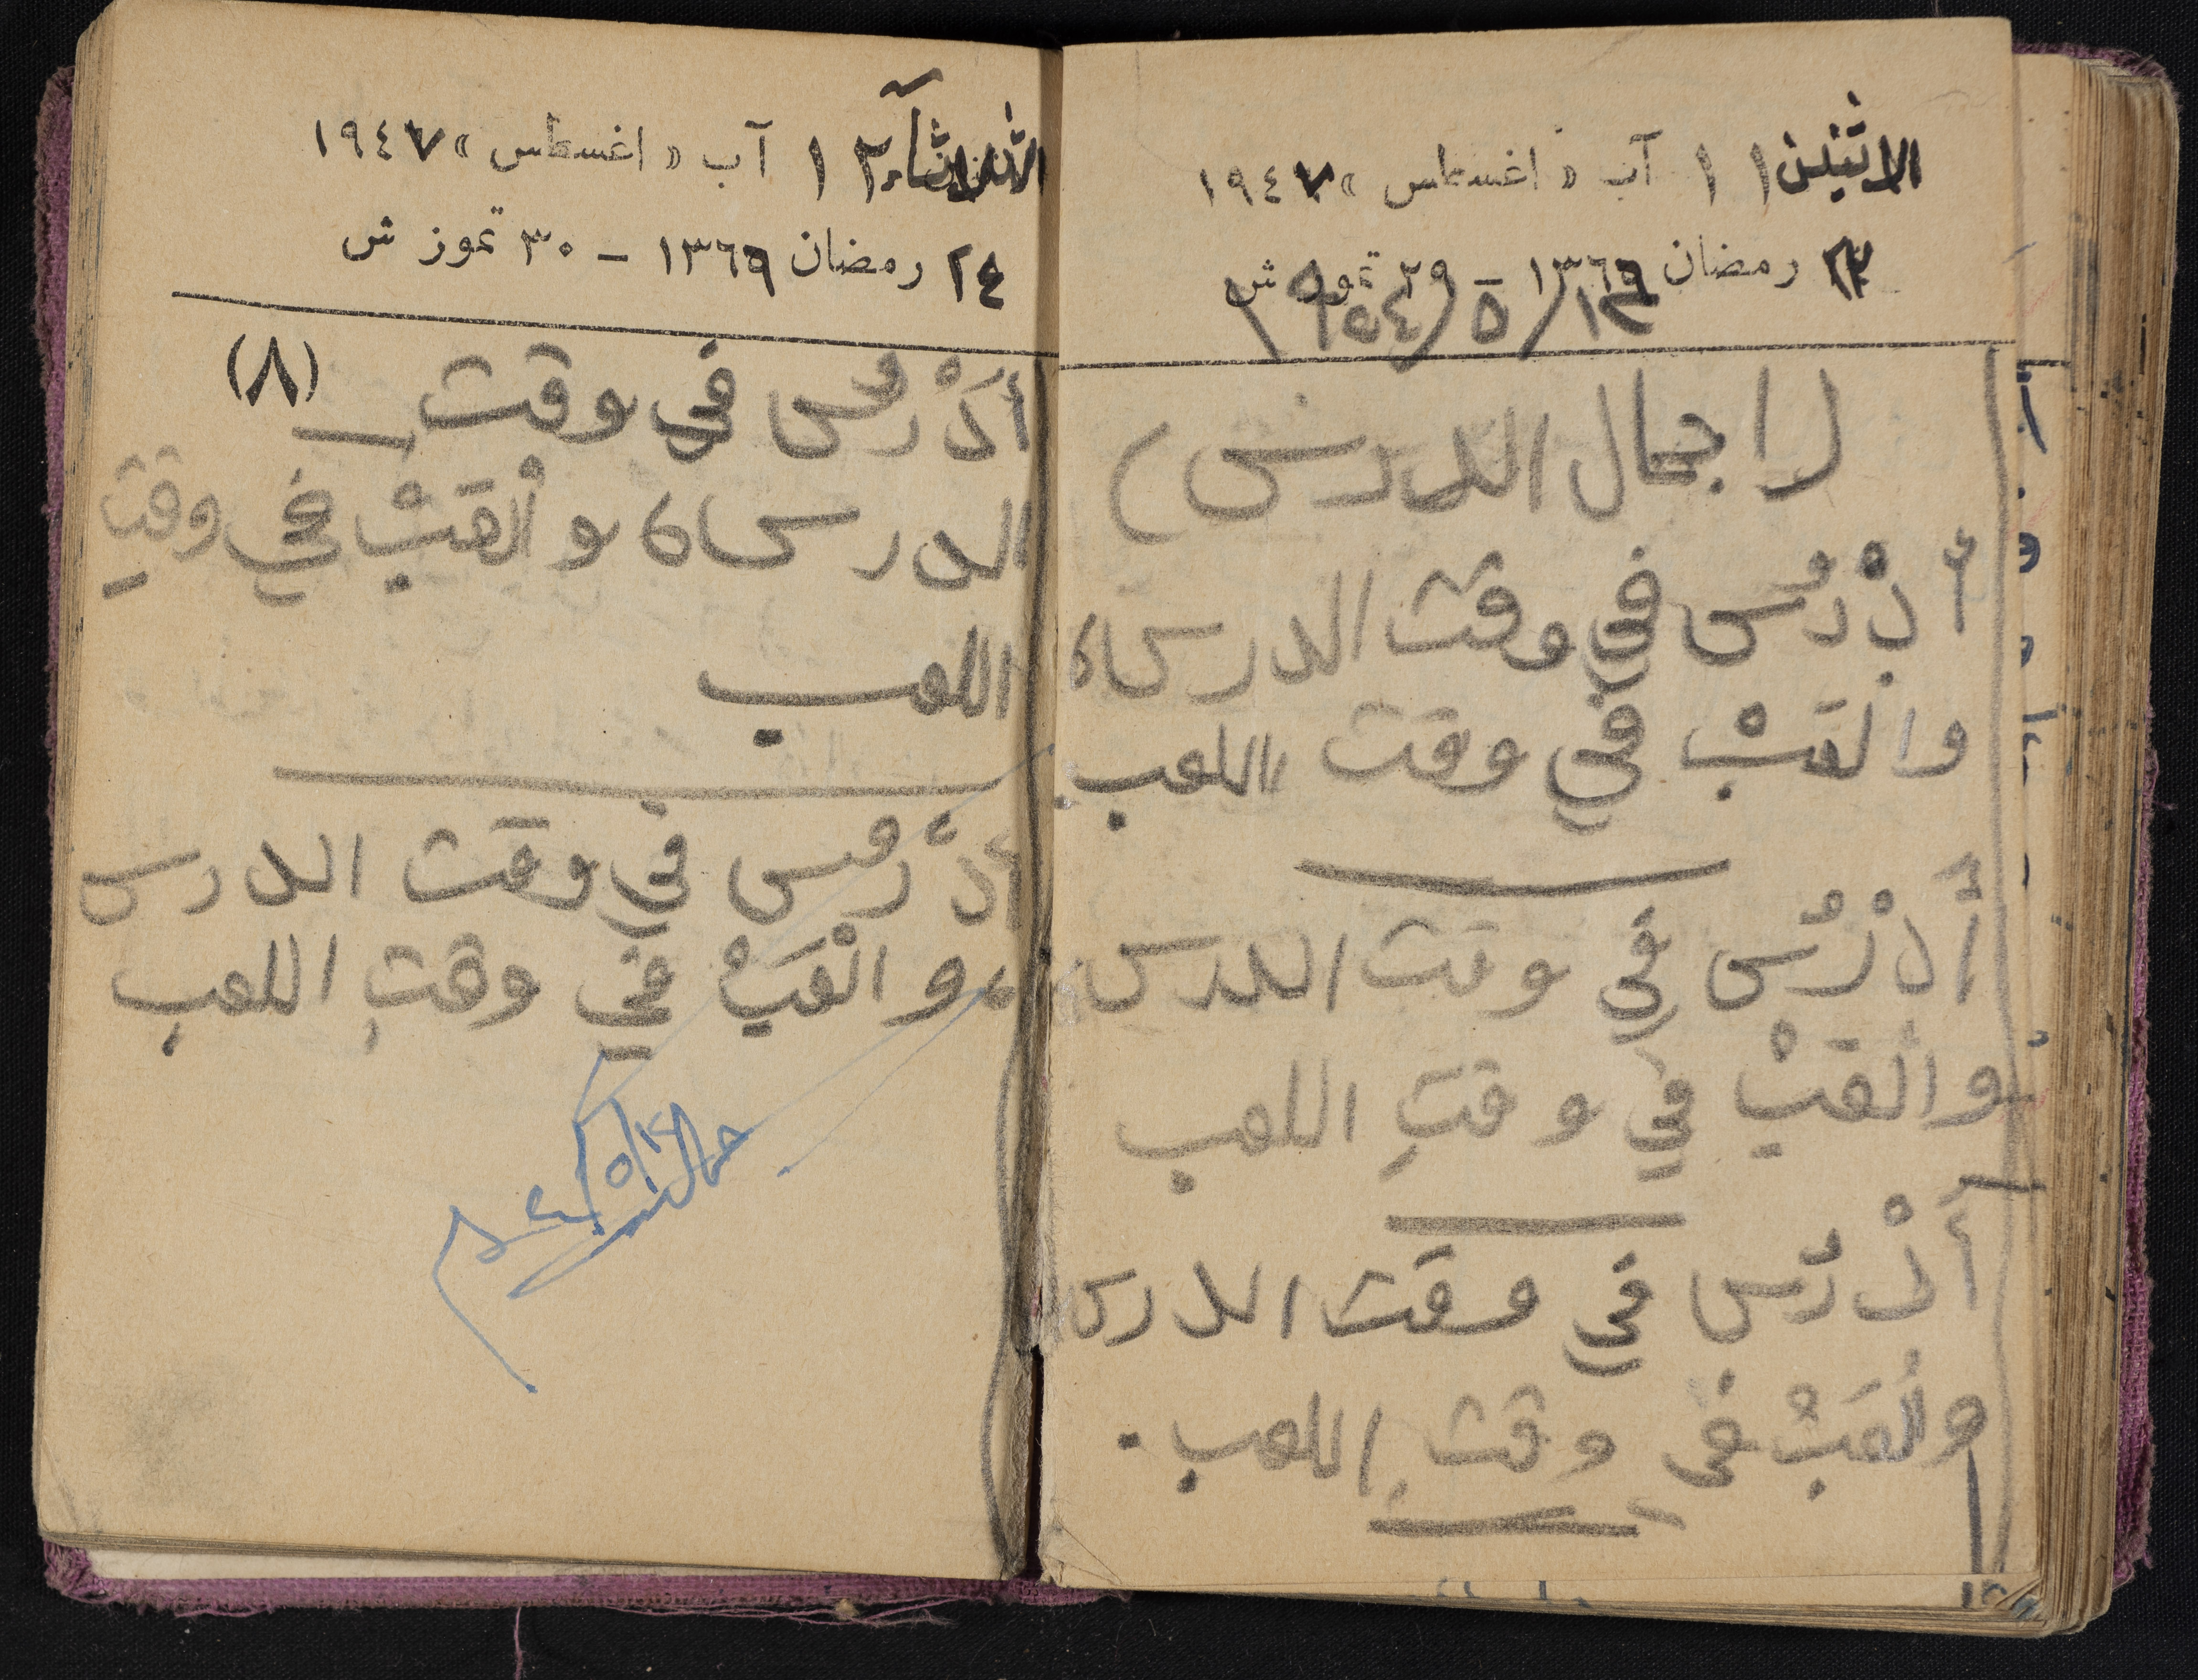 الاثنين ١١ آب « اغسطس » ١٩٤٧
٢٣ رمضان ١٣٦٩ - ٢٩ تموز ش
١٩٥٤/٥/١٢
(اجمال الدرس)
أدْرُس في وقت الدرس،
والعَبْ في وقت اللعب
أدْرُس في وقت الدرس،
والعبْ في وقتِ اللعب
أدْرُس في وقت الدرس
والعَبْ في وقت اللعب.
الثلاثاء ١٢ آب « اغسطس » ١٩٤٧
٢٤ رمضان ١٣٦٩ - ٣٠ تموز ش
(٨)
أدْرُس في وقت
الدرس، وألعَبْ في وقتِ
اللعب
أدْرُس في وقت الدرس
، والْعَبْ في وقتِ اللعب